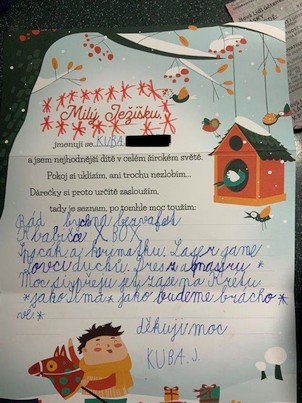 Milý Ježíšku,
jmenuji se KUBA
a jsem nejhodnější dítě v celém širokém světě.
Pokoj si uklízím, ani trochu nezlobím...
Dárečky si proto určitě zasloužím,
tady je seznam, po tomhle moc toužím:
Rád
X BOX
spacák a Laser game
lovci duchů. Dres z
Moc si přeju jet zase na Krétu.
*jako má* jako budeme brácho*
vé.*
děkuji moc
KUBA. J.